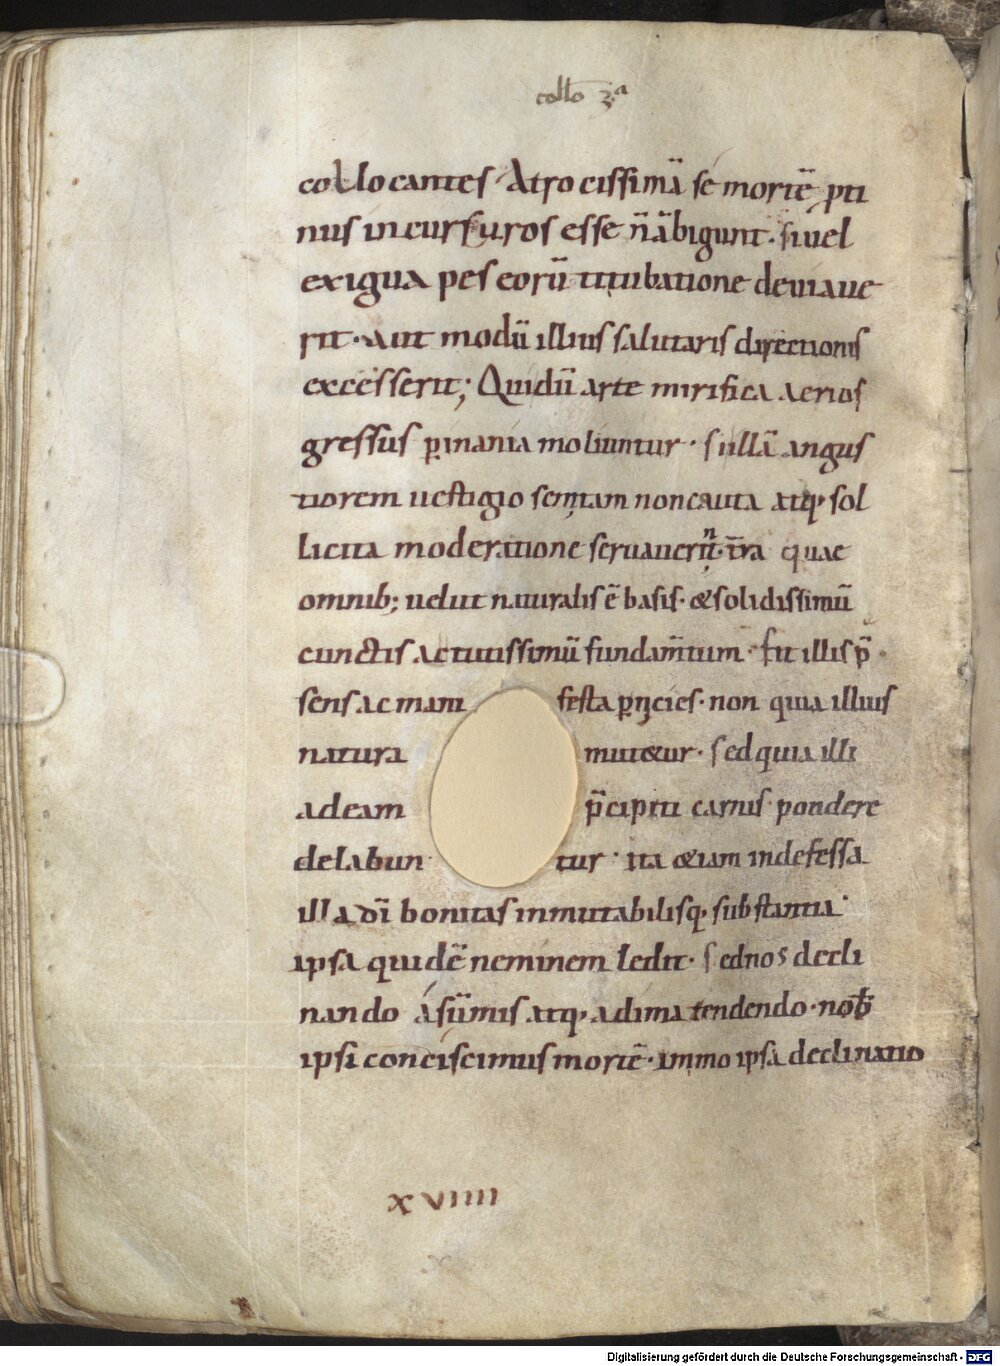 collo 3ª
collocantes Atrocissimā se mortē pti
nus incursuros esse n̄ ābigunt. si uel
exigua pes eorū titubatione deuiaue
rit. aut modū illius salutaris directionis
excesserit; Qui dū arte mirifica aerios
gressus ꝑ inania moliuntur. si illā angus
tiorem uestigio semitam non cauta atq; sol
licita moderatione seruauerint. tr̄a quae
omnib; uelut naturalis ē basis. &solidissimū
cunctis ac tutissimū fundam̄tum. fit illis p̄
sens ac mani festa ꝑnicies. non quia illius
natura mutetur. sed quia illi
ad eam p̄cipiti carnis pondere
delabun tur. ita &iam indefessa
illa dī bonitas inmutabilisq; substantia.
ipsa quidē neminem ledit. sed nos decli
nando á sūmis atq; ad ima tendendo. nob̄
ipsi consciscimus mortē. immo ipsa declinatio
xviiii
Digitalisierung gefördert durch die Deutsche Forschungsgemeinschaft - DFG